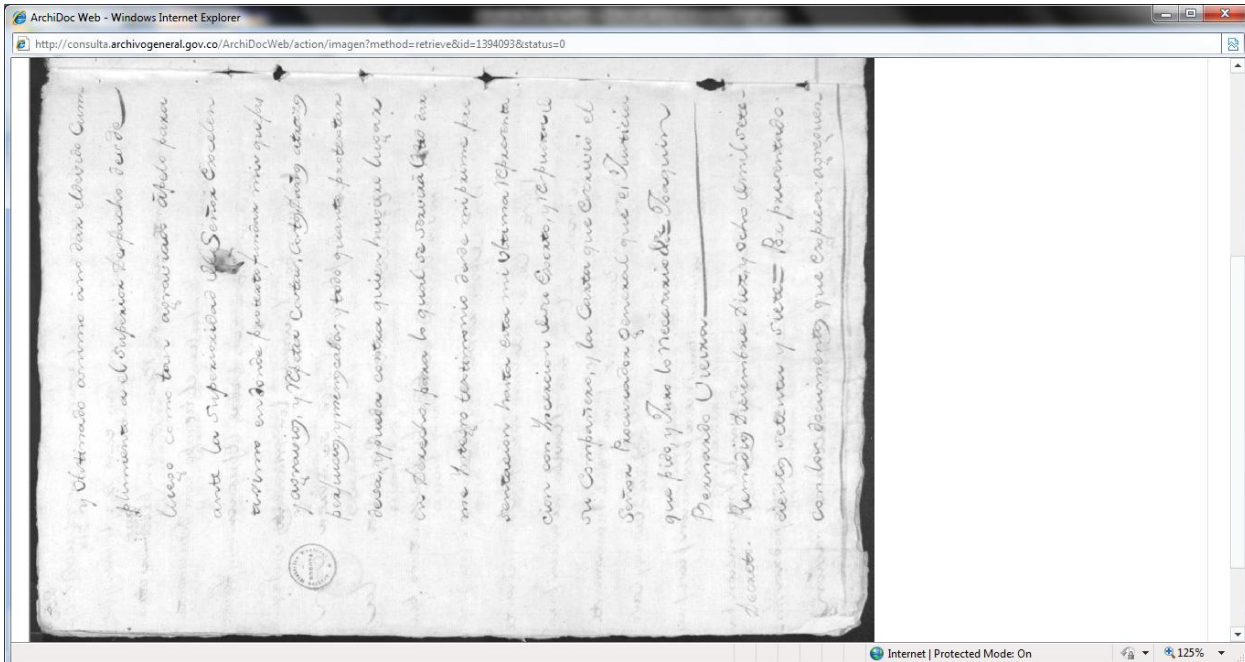 ArchiDoc Web - Windows Internet Explorer
http://consulta.archivogeneral.gov.co/ArchiDocWeb/action/imagen?method=retrieve&id=1394093&status=0
y Obstinado animo ano dar eldevido Cum
plimiento a el Superior despacho desde
luego como tan agraviado apelo para
ante la Superioridad del Señor Excelen
tisimo endonde protesto fundar mis quejas
y agravios, y
perjuicios, y menoscabos, y todo quanto protestar
devea, y pueda contra quien huviere lugar
en Derecho, para lo qual se servirá Usted dar
me Integro testimonio desde mi prime pre
sentacion hasta esta mi Ultima representa
cion con Incercion
su Compañero, y la Carta que Escrivió el
Señor Procurador General que es Justicia
que pido, y Juro lo necesario Joaquin
Bernardo Vieira
Decreto. Remedios Diciembre Diez, y ocho demil sete-
cientos ochenta y siete= Por presentado.
con los documentos que expresa
Internet | Protected Mode: On
125%